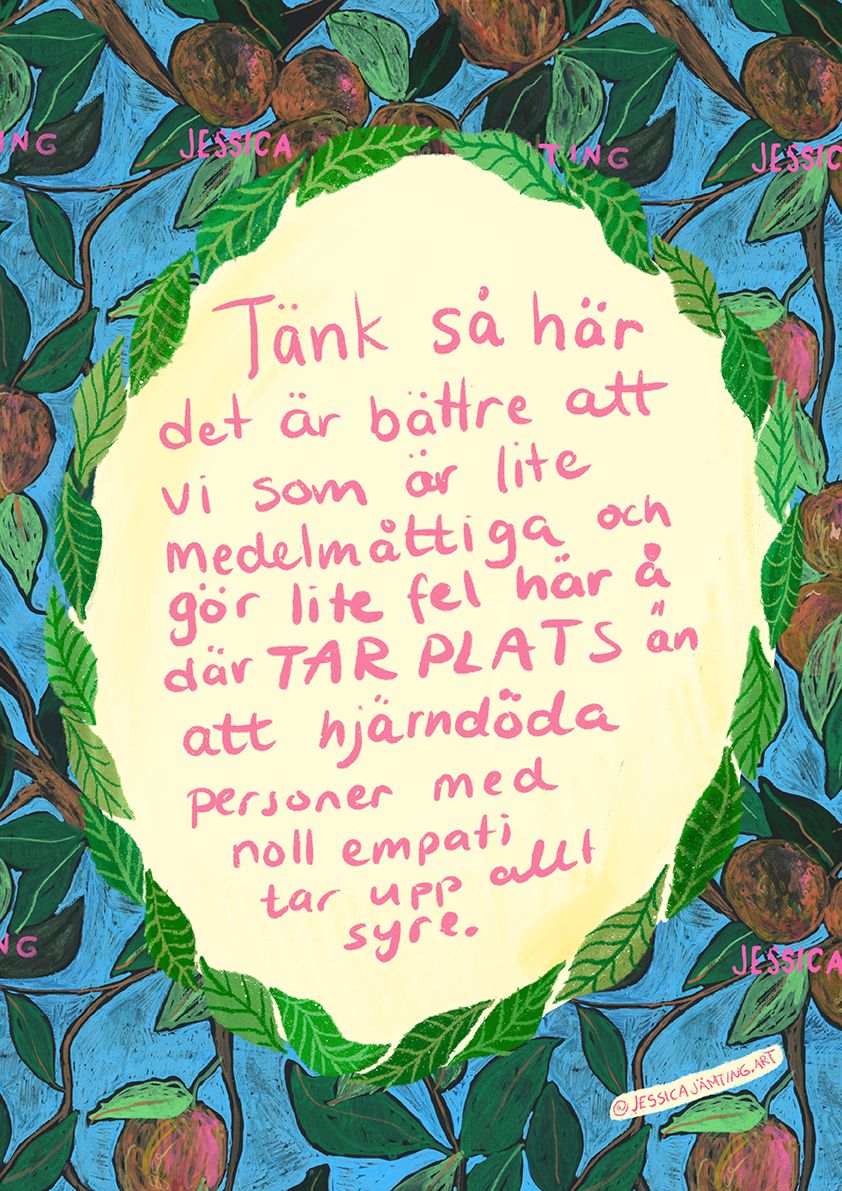 TING
JESSICA
TING
JESSIC
Tänk så här
det är bättre att
vi som är lite
medelmåttiga och
gör lite fel här å
där TAR PLATS än
att hjärndöda
personer med
noll empati
tar upp allt
syre.
NG
JESSICA
@JESSICAJÄMTING.ART